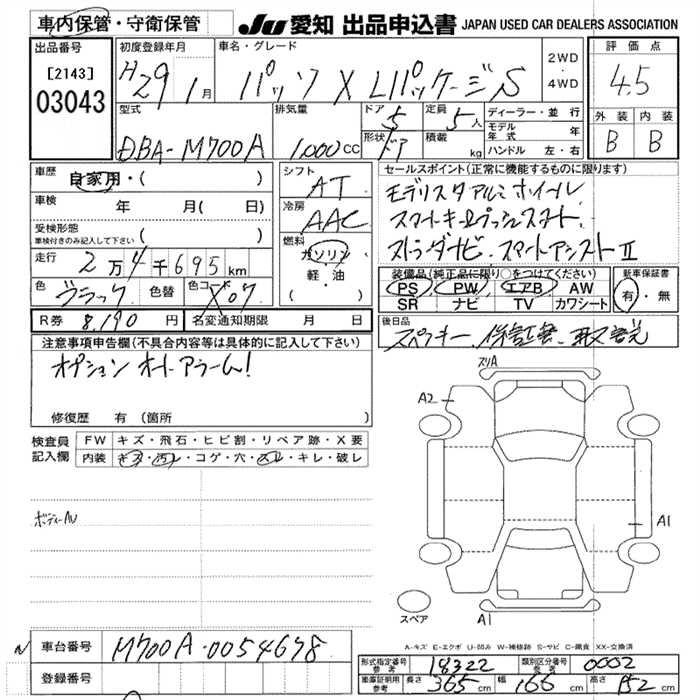 車内保管・守衛保管 JU 愛知 出品申込書 JAPAN USED CAR DEALERS ASSOCIATION
出品番号 初度登録年月 車名・グレード 2WD・4WD 評価点
[2143] 03043 H29 1月 パッソ X LパッケージS 4.5
外装 内装
B B
型式 排気量 ドア 5 定員 5人 ディーラー・並行
DBA-M700A 1,000cc 形状 ドア 積載 kg モデル年式 年
ハンドル 左・右
車歴 自家用・( ) シフト AT セールスポイント(正常に機能するものに限ります)
車検 年 月( 日) 冷房 AAC モデリスタアルミホイール
受検形態 車検付きのみ記入して下さい ( ) スマートキー&プッシュスタート
走行 2万4千695km 燃料 ガソリン ストラーダナビ スマートアシストⅡ
軽・油
( )
色 ブラック 色替 色コード X07
装備品(純正品に限り○をつけてください) 新車保証書
PS PW エアB AW 有・無
SR ナビ TV カワシート
R券 8,190円 名変通知期限 月 日
後日品 スペアキー、保証書、取説
注意事項申告欄(不具合内容等は具体的に記入して下さい)
オプション オートアラーム!
修復歴 有 (箇所 )
検査員記入欄 FW キズ・飛石・ヒビ割・リペア跡・X要
内装 キズ・汚レ・コゲ・穴・スレ・キレ・破レ
スリA
A2
ボディーN
A1
スペア
A1
A-キズ E-エクボ U-凹み W-補修跡 S-サビ C-腐食 XX-交換済
N 車台番号 M700A-0054678
登録番号
形式指定番号 参考 18322 類別区分番号 参考 0002
車庫証明用 参考 長さ 365cm 幅 165cm 高さ 152cm